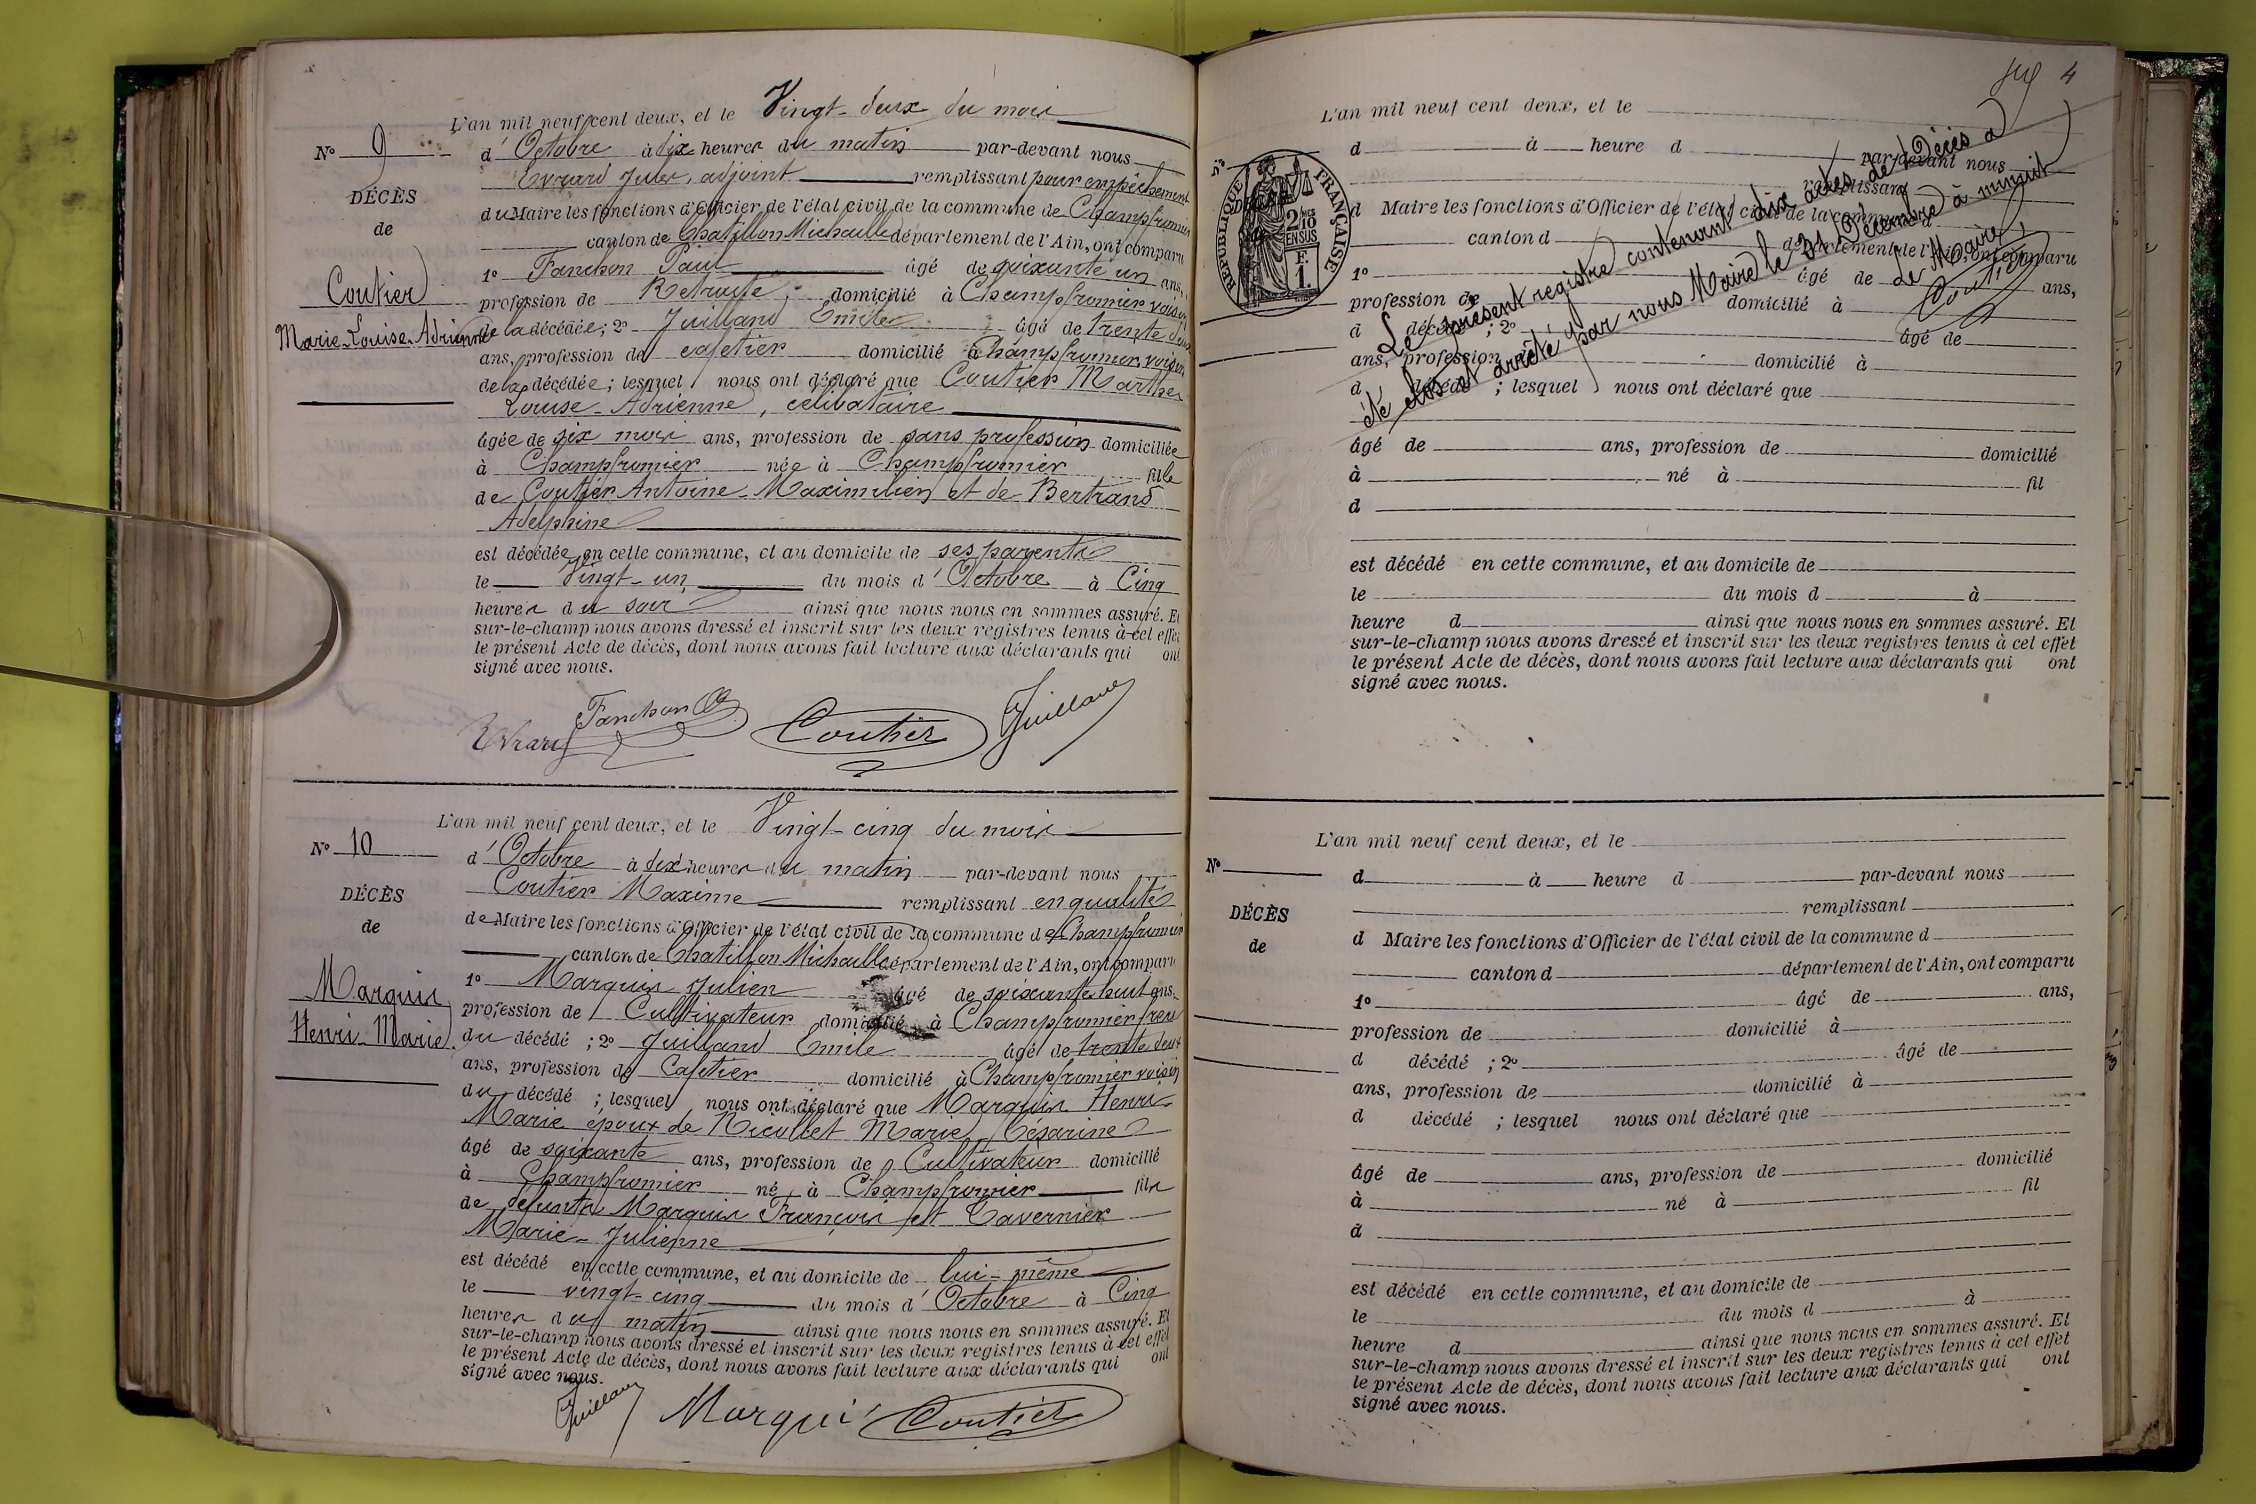 L'an mil neuf cent deux, et le Vingt-deux du mois
N° 9
d'Octobre à dix heures du matin par-devant nous
Evrard Jules, adjoint remplissant pour empêchement
DÉCÈS
du Maire les fonctions d'Officier de l'état civil de la commune de Champfromier
de
canton de Chatillon Michaille département de l'Ain, ont comparu
1° Fanchon Paul âgé de soixante un ans,
Coutier
profession de Retraité, domicilié à Champfromier voisin
Marie-Louise-Adrienne
de la décédée ; 2° Juilland Emile âgé de trente deux
ans, profession de cafetier domicilié à Champfromier, voisin
de la décédée ; lesquels nous ont déclaré que Coutier Marthe
Louise-Adrienne, célibataire
âgée de six mois ans, profession de sans profession domiciliée
à Champfromier née à Champfromier fille
de Coutier Antoine Maximilien et de Bertrand
Adelphine
est décédée en cette commune, et au domicile de ses parents
le Vingt-un du mois d'Octobre à Cinq
heures du soir ainsi que nous nous en sommes assuré. Et
sur-le-champ nous avons dressé et inscrit sur les deux registres tenus à cet effet
le présent Acte de décès, dont nous avons fait lecture aux déclarants qui ont
signé avec nous.
Evrard Fanchon Coutier Juilland
L'an mil neuf cent deux, et le Vingt-cinq du mois
N° 10
d'Octobre à dix heures du matin par-devant nous
Coutier Maxime remplissant en qualité
DÉCÈS
de Maire les fonctions d'Officier de l'état civil de la commune de Champfromier
de
canton de Chatillon Michaille département de l'Ain, ont comparu
1° Marquis Julien âgé de soixante huit ans,
Marquis
profession de Cultivateur domicilié à Champfromier frère
Henri-Marie
du décédé ; 2° Juilland Emile âgé de trente deux
ans, profession de Cafetier domicilié à Champfromier voisin
du décédé ; lesquels nous ont déclaré que Marquis Henri-
Marie époux de Nicollet Marie Césarine
âgé de soixante ans, profession de Cultivateur domicilié
à Champfromier né à Champfromier fils
de défunts Marquis François et Tavernier
Marie-Julienne
est décédé en cette commune, et au domicile de lui-même
le vingt-cinq du mois d'Octobre à Cinq
heures du matin ainsi que nous nous en sommes assuré. Et
sur-le-champ nous avons dressé et inscrit sur les deux registres tenus à cet effet
le présent Acte de décès, dont nous avons fait lecture aux déclarants qui ont
signé avec nous.
Juilland Marquis Coutier
4
L'an mil neuf cent deux, et le
N°
d à heure d par-devant nous
remplissant
d Maire les fonctions d'Officier de l'état civil de la commune d
canton d département de l'Ain, ont comparu
1° âgé de ans,
profession de domicilié à
d décédé ; 2° âgé de
ans, profession domicilié à
d décédé ; lesquel nous ont déclaré que
RÉPUBLIQUE FRANÇAISE
2/10
EN SUS
F.
1.
Le présent registre contenant dix actes de Décès a
été clos et arrêté par nous Maire le 31 Décembre à minuit
Le Maire,
Coutier
âgé de ans, profession de domicilié
à né à fil
d
est décédé en cette commune, et au domicile de
le du mois d à
heure d ainsi que nous nous en sommes assuré. Et
sur-le-champ nous avons dressé et inscrit sur les deux registres tenus à cet effet
le présent Acte de décès, dont nous avons fait lecture aux déclarants qui ont
signé avec nous.
L'an mil neuf cent deux, et le
N°
d à heure d par-devant nous
remplissant
DÉCÈS
d Maire les fonctions d'Officier de l'état civil de la commune d
de
canton d département de l'Ain, ont comparu
1° âgé de ans,
profession de domicilié à
d décédé ; 2° âgé de
ans, profession de domicilié à
d décédé ; lesquel nous ont déclaré que
âgé de ans, profession de domicilié
à né à fil
d
est décédé en cette commune, et au domicile de
le du mois d à
heure d ainsi que nous nous en sommes assuré. Et
sur-le-champ nous avons dressé et inscrit sur les deux registres tenus à cet effet
le présent Acte de décès, dont nous avons fait lecture aux déclarants qui ont
signé avec nous.